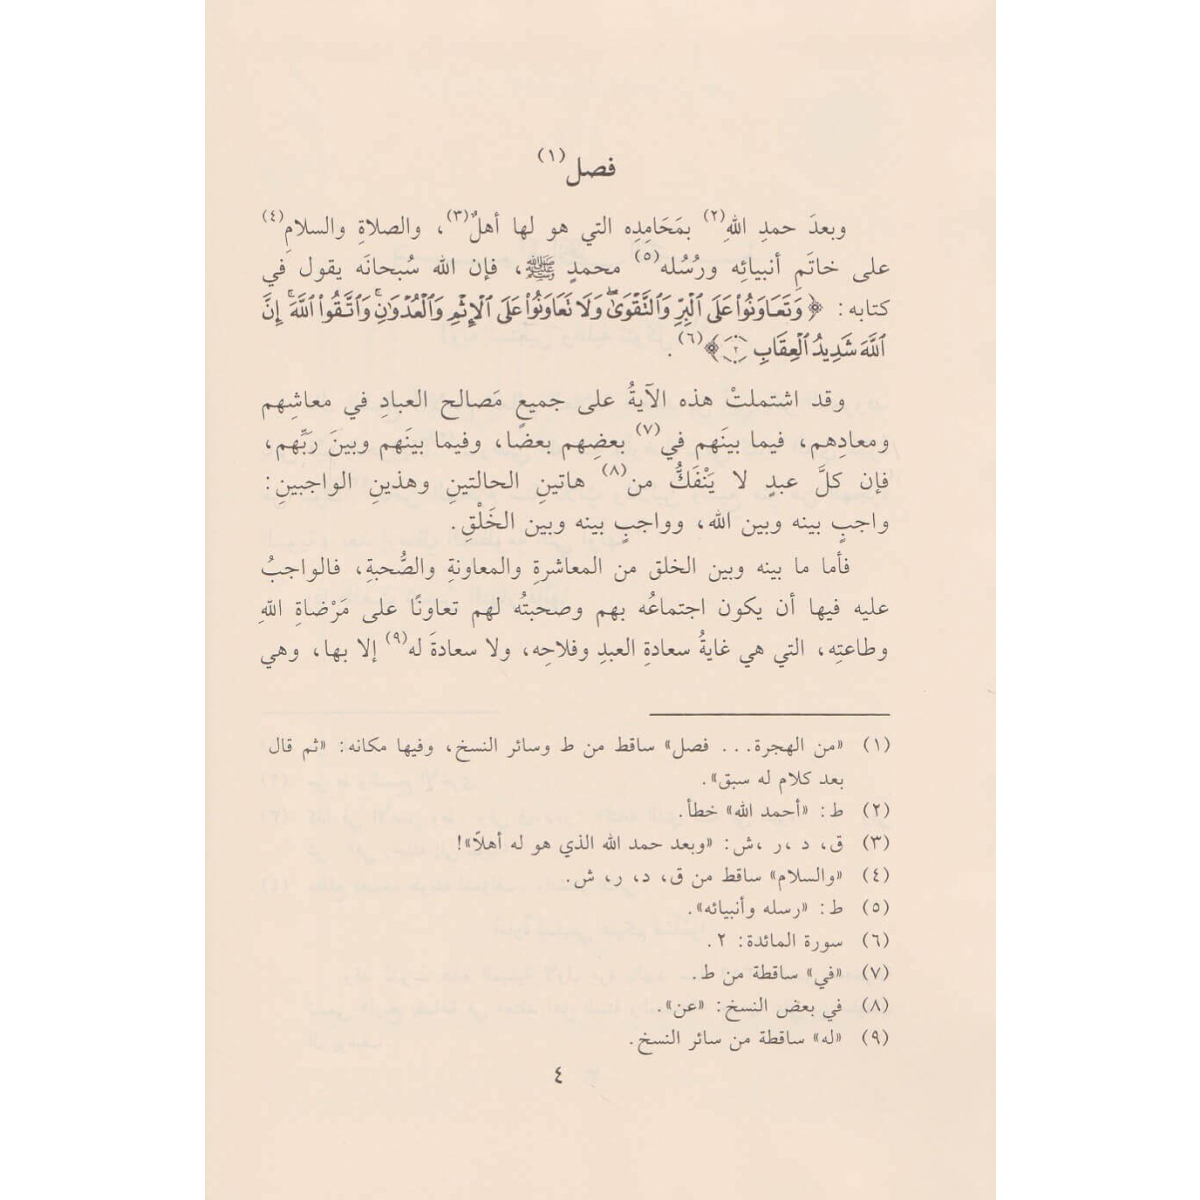 فصل(١)
وبعدَ حمدِ اللهِ(٢) بمَحَامِدِه التي هو لها أهلٌ(٣)، والصلاةِ والسلامِ(٤)
على خاتَمِ أنبيائِه ورُسُله(٥) محمدٍ ﷺ، فإن الله سُبحانَه يقول في
كتابه: ﴿وَتَعَاوَنُوا۟ عَلَى ٱلْبِرِّ وَٱلتَّقْوَىٰ ۖ وَلَا تَعَاوَنُوا۟ عَلَى ٱلْإِثْمِ وَٱلْعُدْوَٰنِ ۚ وَٱتَّقُوا۟ ٱللَّهَ ۖ إِنَّ
ٱللَّهَ شَدِيدُ ٱلْعِقَابِ ٢﴾(٦).
وقد اشتملتْ هذه الآيةُ على جميعِ مَصالح العبادِ في معاشِهم
ومعادِهم، فيما بينَهم في(٧) بعضِهم بعضًا، وفيما بينَهم وبينَ ربِّهم،
فإن كلَّ عبدٍ لا يَنْفَكُّ من(٨) هاتينِ الحالتينِ وهذينِ الواجبينِ:
واجبٍ بينه وبين الله، وواجبٍ بينه وبين الخَلْقِ.
فأما ما بينه وبين الخلق من المعاشرةِ والمعاونةِ والصُّحبةِ، فالواجبُ
عليه فيها أن يكون اجتماعُه بهم وصحبتُه لهم تعاونًا على مَرْضاةِ اللهِ
وطاعتِه، التي هي غايةُ سعادةِ العبدِ وفلاحِه، ولا سعادةَ له(٩) إلا بها، وهي
(١) «من الهجرة... فصل» ساقط من ط وسائر النسخ، وفيها مكانه: «ثم قال
بعد كلام له سبق».
(٢) ط: «أحمد الله» خطأ.
(٣) ق، د، ر، ش: «وبعد حمد الله الذي هو له أهلاً»!
(٤) «والسلام» ساقط من ق، د، ر، ش.
(٥) ط: «رسله وأنبيائه».
(٦) سورة المائدة: ٢.
(٧) «في» ساقطة من ط.
(٨) في بعض النسخ: «عن».
(٩) «له» ساقطة من سائر النسخ.
٤